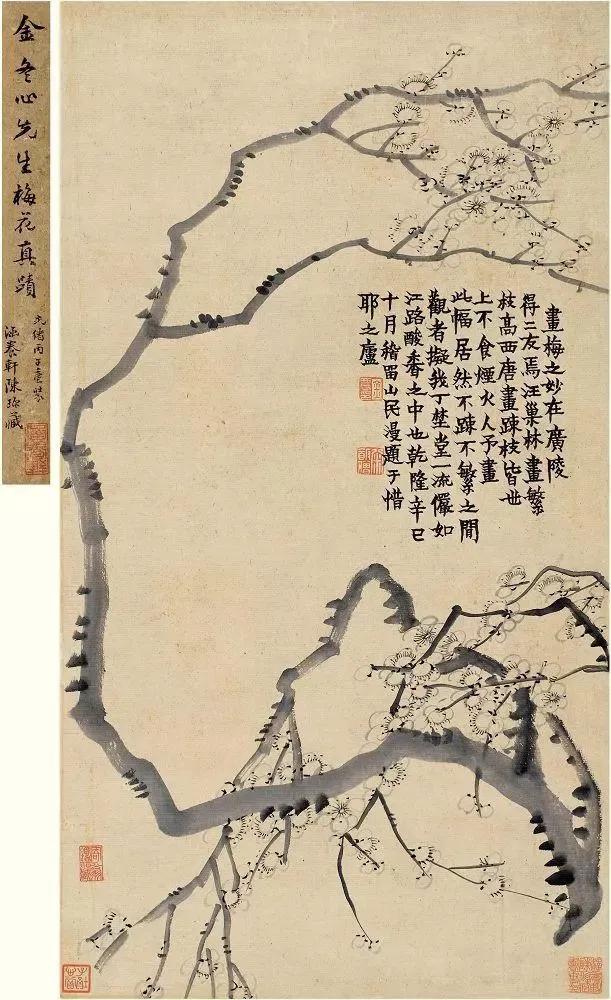 金冬心先生梅花真蹟
光緒丙子重裝
涵養軒陳珎藏
畫梅之妙在廣陵
得二友焉汪巢林畫繁
枝高西唐畫疎枝皆世
上不食煙火人予畫
此幅居然不疎不繁之間
觀者擬我丁埜堂一流儼如
江路酸香之中也乾隆辛巳
十月稽畱山民漫題于惜
耶之廬